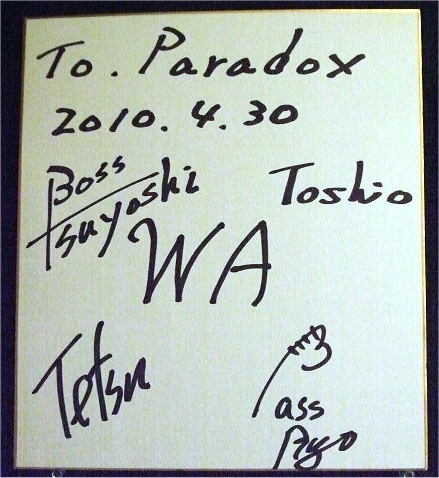 To. Paradox
2010. 4. 30
Boss
Tsuyoshi
Toshio
WA
Tetsu
Bass
Ryo